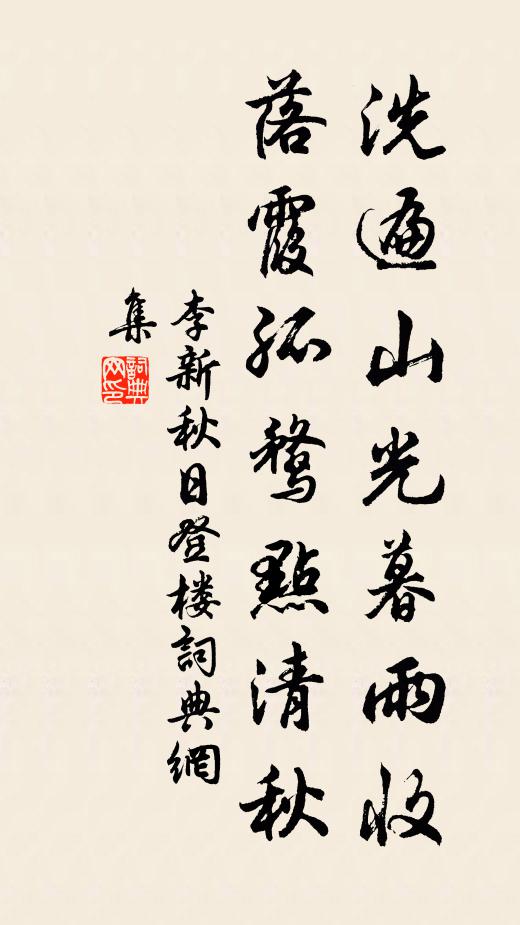 洗遍山光暮雨收
落霞孤鶩點清秋
李新秋日登楼詞典網
集
詞典網印